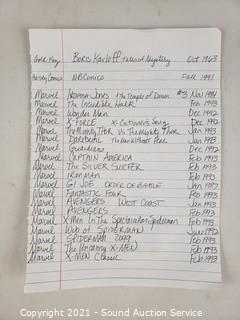 Gold Key Boris Karloff Tales of Mystery Oct 1963
Harvey Comics NB Comics Fall 1991
Marvel Indiana Jones & The Temple of Doom #3 Nov 1984
Marvel The Incredible Hulk Feb 1993
Marvel Wonder Man Dec 1992
Marvel X-Force X-Cutioner's Song Dec 1992
Marvel The Mighty Thor Vs The Mighty Thor Jan 1993
Marvel Daredevil The Man Without Fear Jan 1993
Marvel Guardians Dec 1992
Marvel Captain America Feb 1993
Marvel The Silver Surfer Feb 1993
Marvel Iron Man Feb 1993
Marvel GI Joe Order of Battle Jan 1987
Marvel Fantastic Four Feb 1993
Marvel Avengers West Coast Jan 1993
Marvel Avengers Feb 1993
Marvel X-Men In The Spectacular Spiderman Feb 1993
Marvel Web of Spiderman June 1992
Marvel Spiderman 2099 Feb 1993
Marvel The Uncanny X-Men Feb 1993
Marvel X-Men Classic Feb 1993
Copyright 2021 - Sound Auction Service